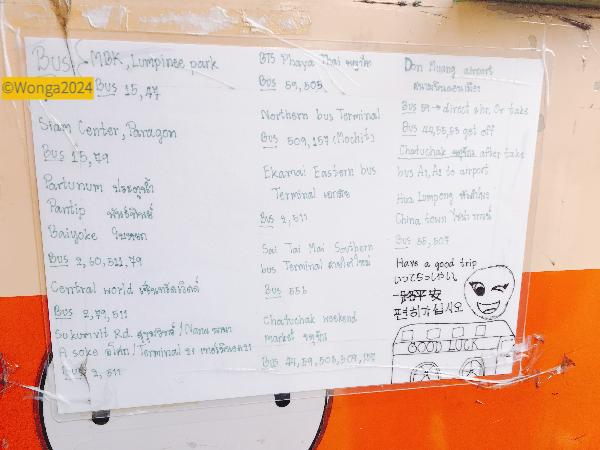 ©Wonga2024
Bus MBK, Lumpinee park
Bus 15, 47
Siam Center, Paragon
Bus 15, 79
Partunum ประตูน้ำ
Pantip พันธ์ทิพย์
Baiyoke ใบหยก
Bus 2, 60, 511, 79
Central world เซ็นทรัลเวิลด์
Bus 2, 79, 511
Sukumvit Rd. สุขุมวิทย์ / Nana นานา
Asoke อโศก / Terminal 21
2, 511
BTS Phaya Thai พญาไท
Bus 59, 503
Northern bus Terminal
Bus 509, 157 (Mochit)
Ekamai Eastern bus
Terminal เอกมัย
Bus 2, 511
Sai Tai Mai Southern
bus Terminal สายใต้ใหม่
Bus 556
Chatuchak weekend
market จตุจักร
Bus 44, 59, 503, 509, 157
Don Muang airport
สนามบินดอนเมือง
Bus 59 → direct 2hr. Or take
Bus 44, 55, 53 get off
Chatuchak จตุจักร after take
bus A1, A2 to airport
Hua Lumpong หัวลำโพง
China town ไชน่าทาวน์
Bus 35, 507
Have a good trip
いってらっしゃい
一路平安
편히가십시오
GOOD LUCK